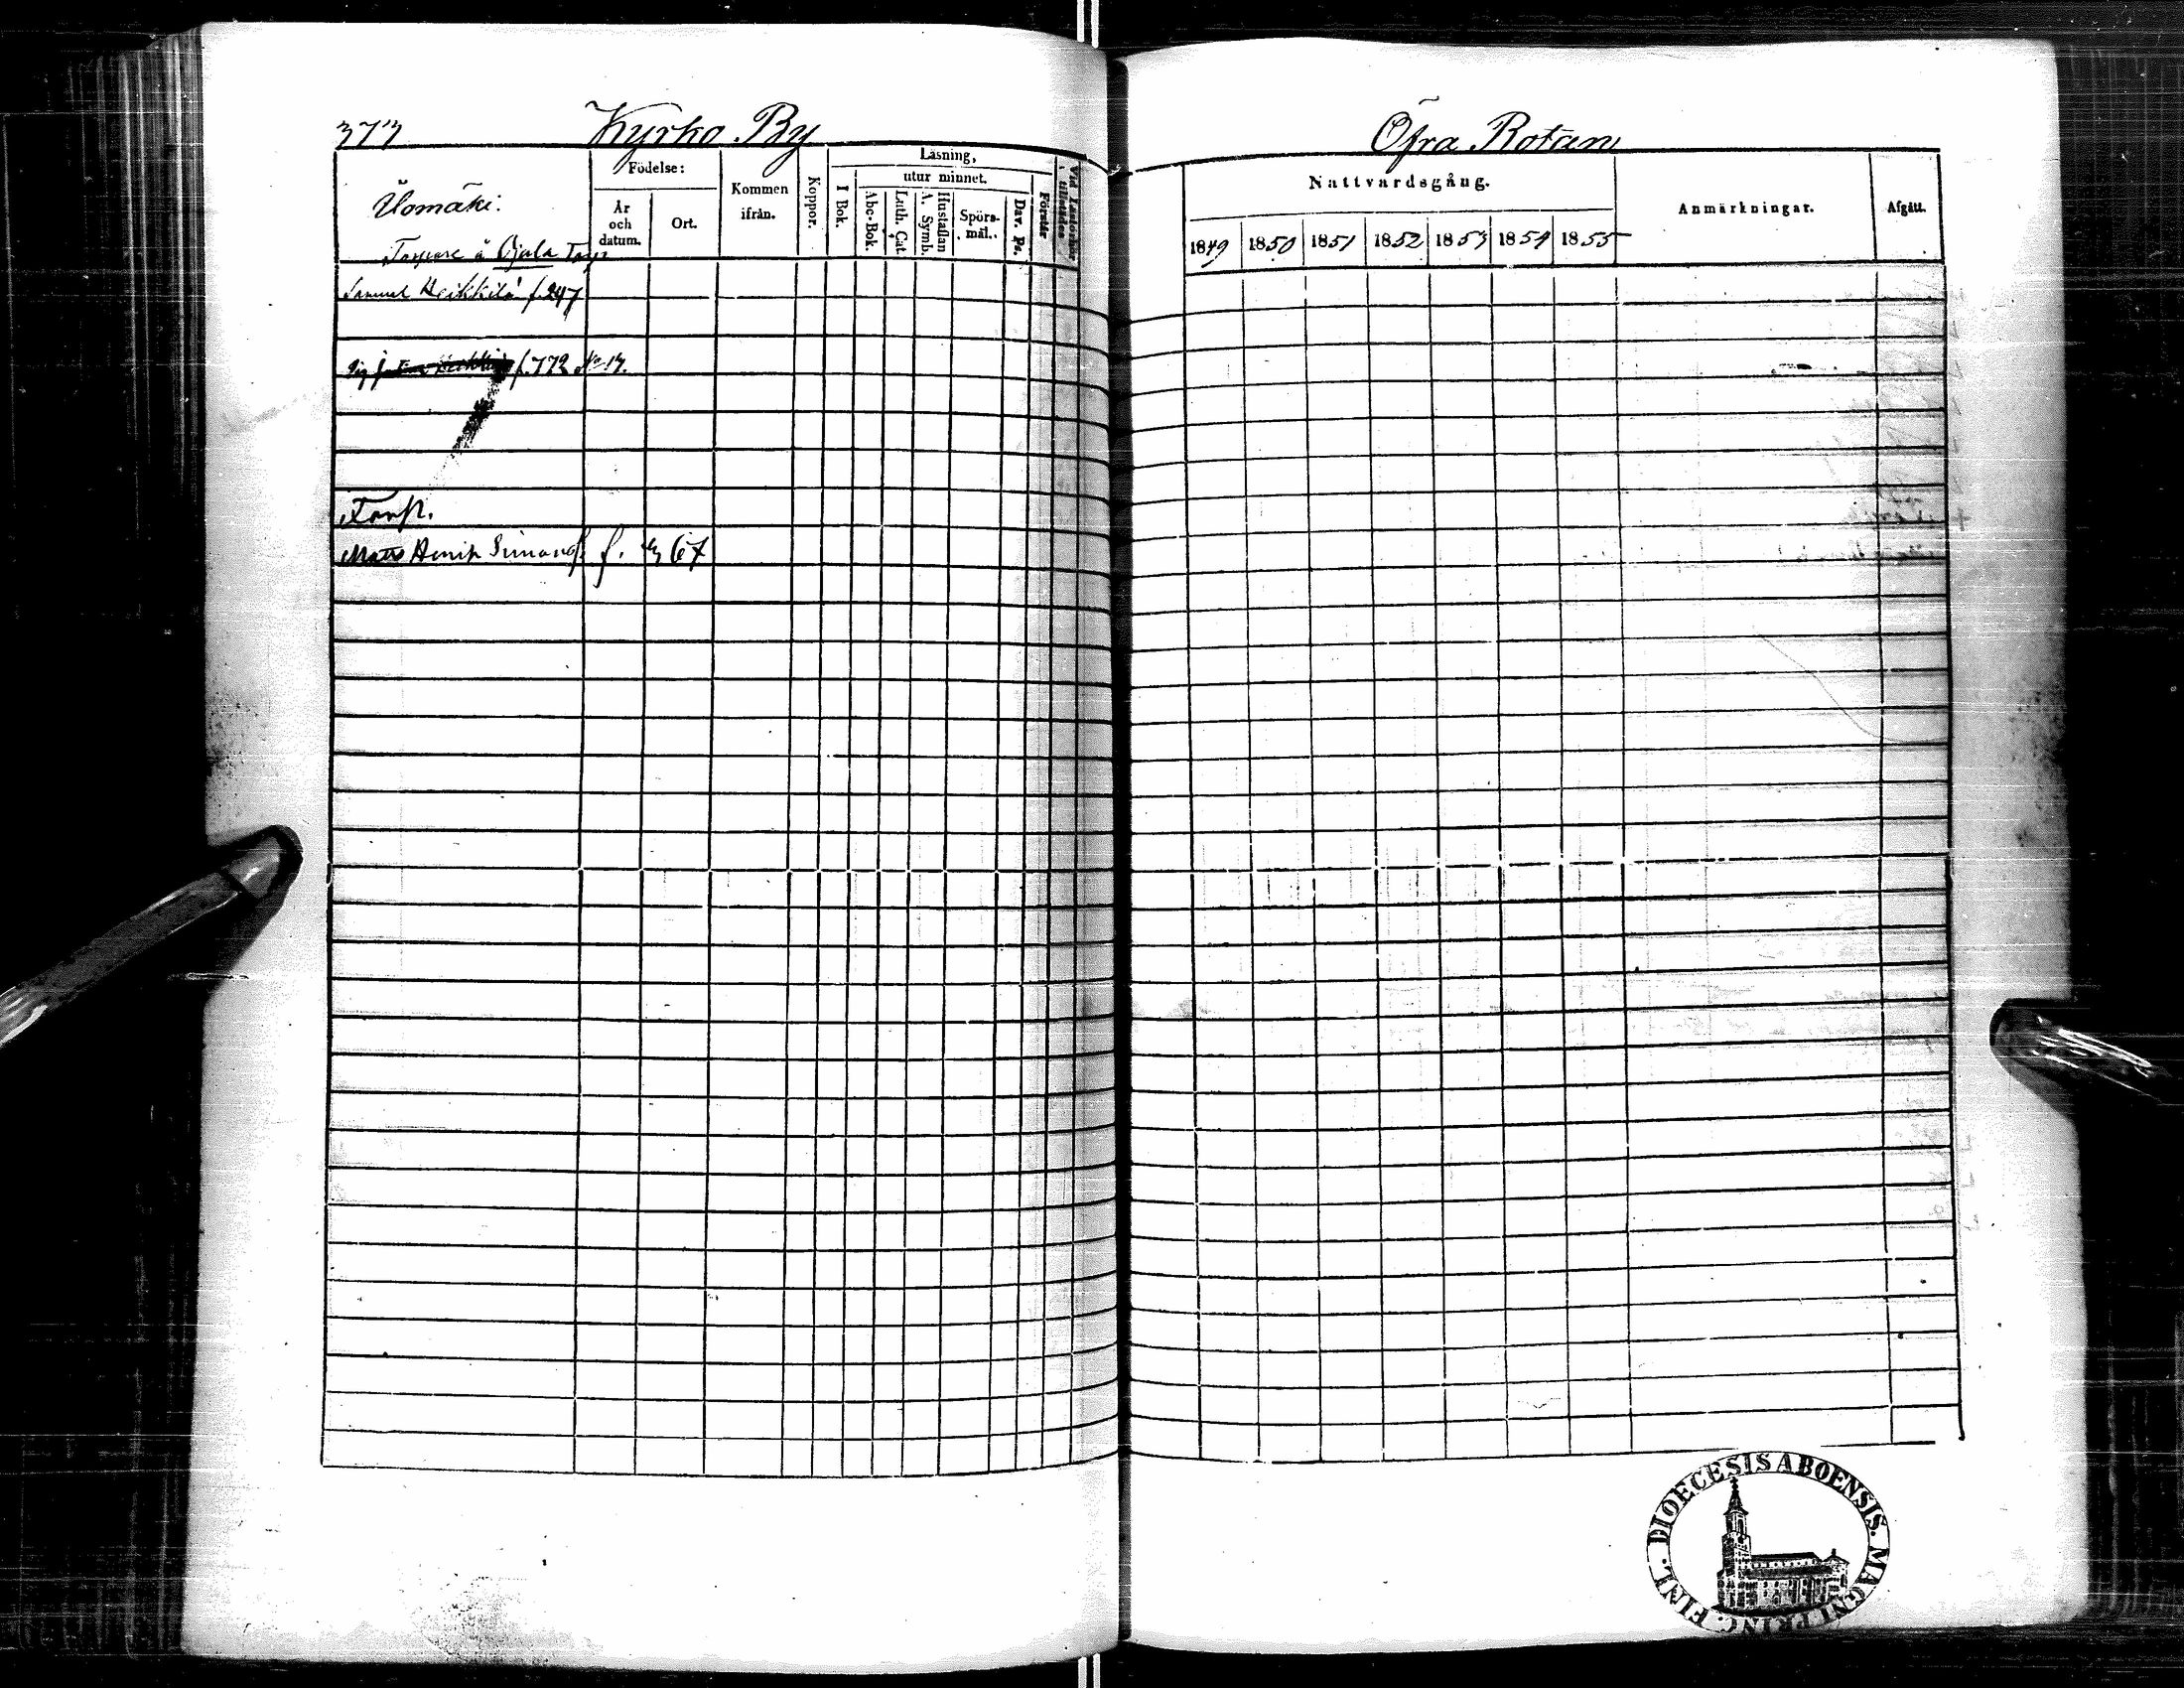 373 Kyrko By
Öfra Rotan
Födelse:
År och datum.
Ort.
Kommen ifrån.
Koppor.
Läsning,
I Bok.
utur minnet.
Abc-Bok.
Luth. Cat.
A. Symb.
Hustaflan
Spörs-mål.
Dav. Ps.
Förstår
Vid Läsförhör tillstädes
Torpare å Ojala Torp
Samuel Heikkilä f. 247
f. 772 No 17.
Torp.
Mats Henrik Simonss. f. 467
Nattvardsgång.
1849 1850 1851 1852 1853 1854 1855
Anmärkningar.
Afgått.
DIOECESIS ABOENSIS. MAGNI PRINC. FINL.